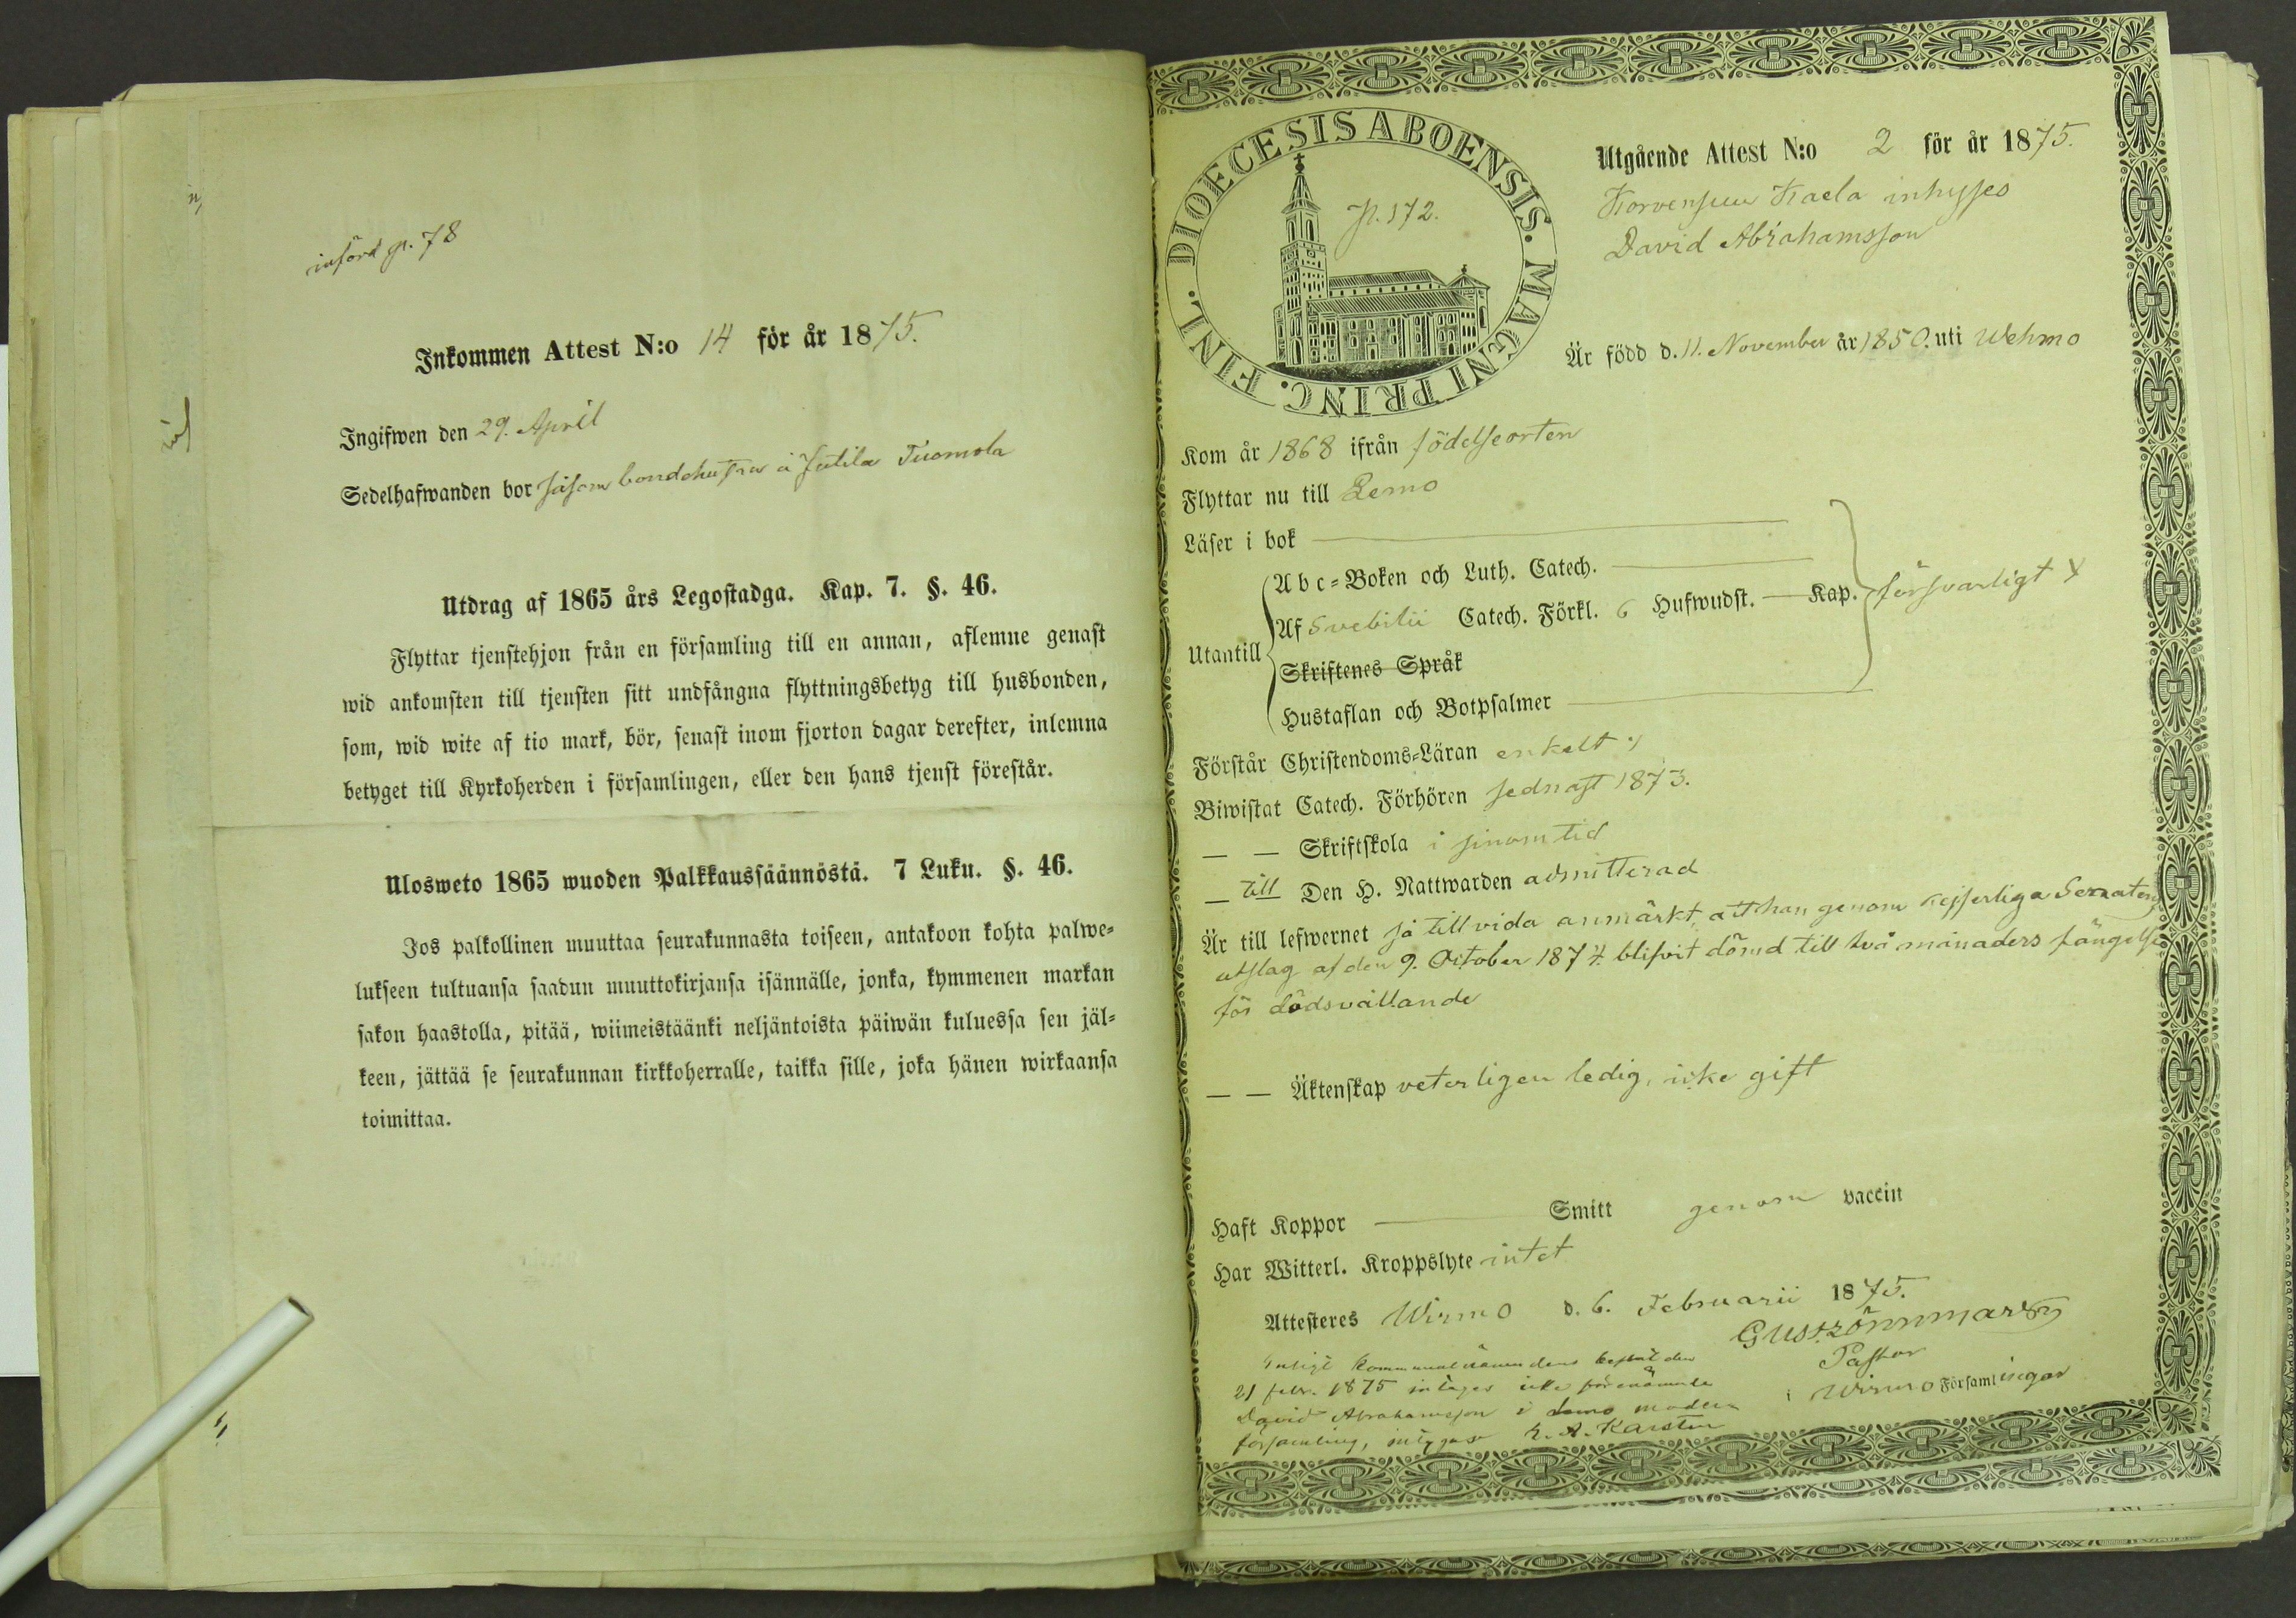 införd p. 78
Inkommen Attest N:o 14 för år 1875.
Ingifwen den 29. April
Sedelhafwanden bor såsom bondehustru å Jutila Tuomola
Utdrag af 1865 års Legostadga. Kap. 7. §. 46.
Flyttar tjenstehjon från en församling till en annan, aflemne genast
wid ankomsten till tjensten sitt undfångna flyttningsbetyg till husbonden,
som, wid wite af tio mark, bör, senast inom fjorton dagar derefter, inlemna
betyget till Kyrkoherden i församlingen, eller den hans tjenst förestår.
Ulosweto 1865 wuoden Palkkaussäännöstä. 7 Luku. §. 46.
Jos palkollinen muuttaa seurakunnasta toiseen, antakoon kohta palwe-
lukseen tultuansa saadun muuttokirjansa isännälle, jonka, kymmenen markan
sakon haastolla, pitää, wiimeistäänki neljäntoista päiwän kuluessa sen jäl-
keen, jättää se seurakunnan kirkkoherralle, taikka sille, joka hänen wirkaansa
toimittaa.
DIOECESIS ABOENSIS. MAGNI PRINC. FINL.
p. 172.
Utgående Attest N:o 2 för år 1875.
Korvensuu Kaela inhyses
David Abrahamsson
Är född d. 11. November år 1850. uti Wehmo
Kom år 1868 ifrån födelseorten
Flyttar nu till Lemo
Läser i bok
Utantill
Abc-Boken och Luth. Catech.
Af Svebilii Catech. Förkl. 6 Hufwudst. Kap. försvarligt
Skriftenes Språk
Hustaflan och Botpsalmer
Förstår Christendoms-Läran enkelt
Biwistat Catech. Förhören sednast 1873.
— — Skriftskola i sinom tid
— till Den H. Nattwarden admitterad
Är till lefwernet så till vida anmärkt, att han genom Kejserliga Senatens
utslag af den 9. October 1874 blifvit dömd till två månaders fängelse
för dödsvållande
— — Äktenskap veterligen ledig, icke gift
Haft Koppor Smitt genom vaccin
Har Witterl. Kroppslyte intet
Attesteres Wirmo d. 6. Februarii 1875.
Gust. Rönnmark
Pastor
i Wirmo Församlingar
Enligt kommunalnämndens beslut den
21 febr. 1875 intages icke förenämnde
David Abrahamsson i Lemo moder
församling, intygar K. A. Karsten